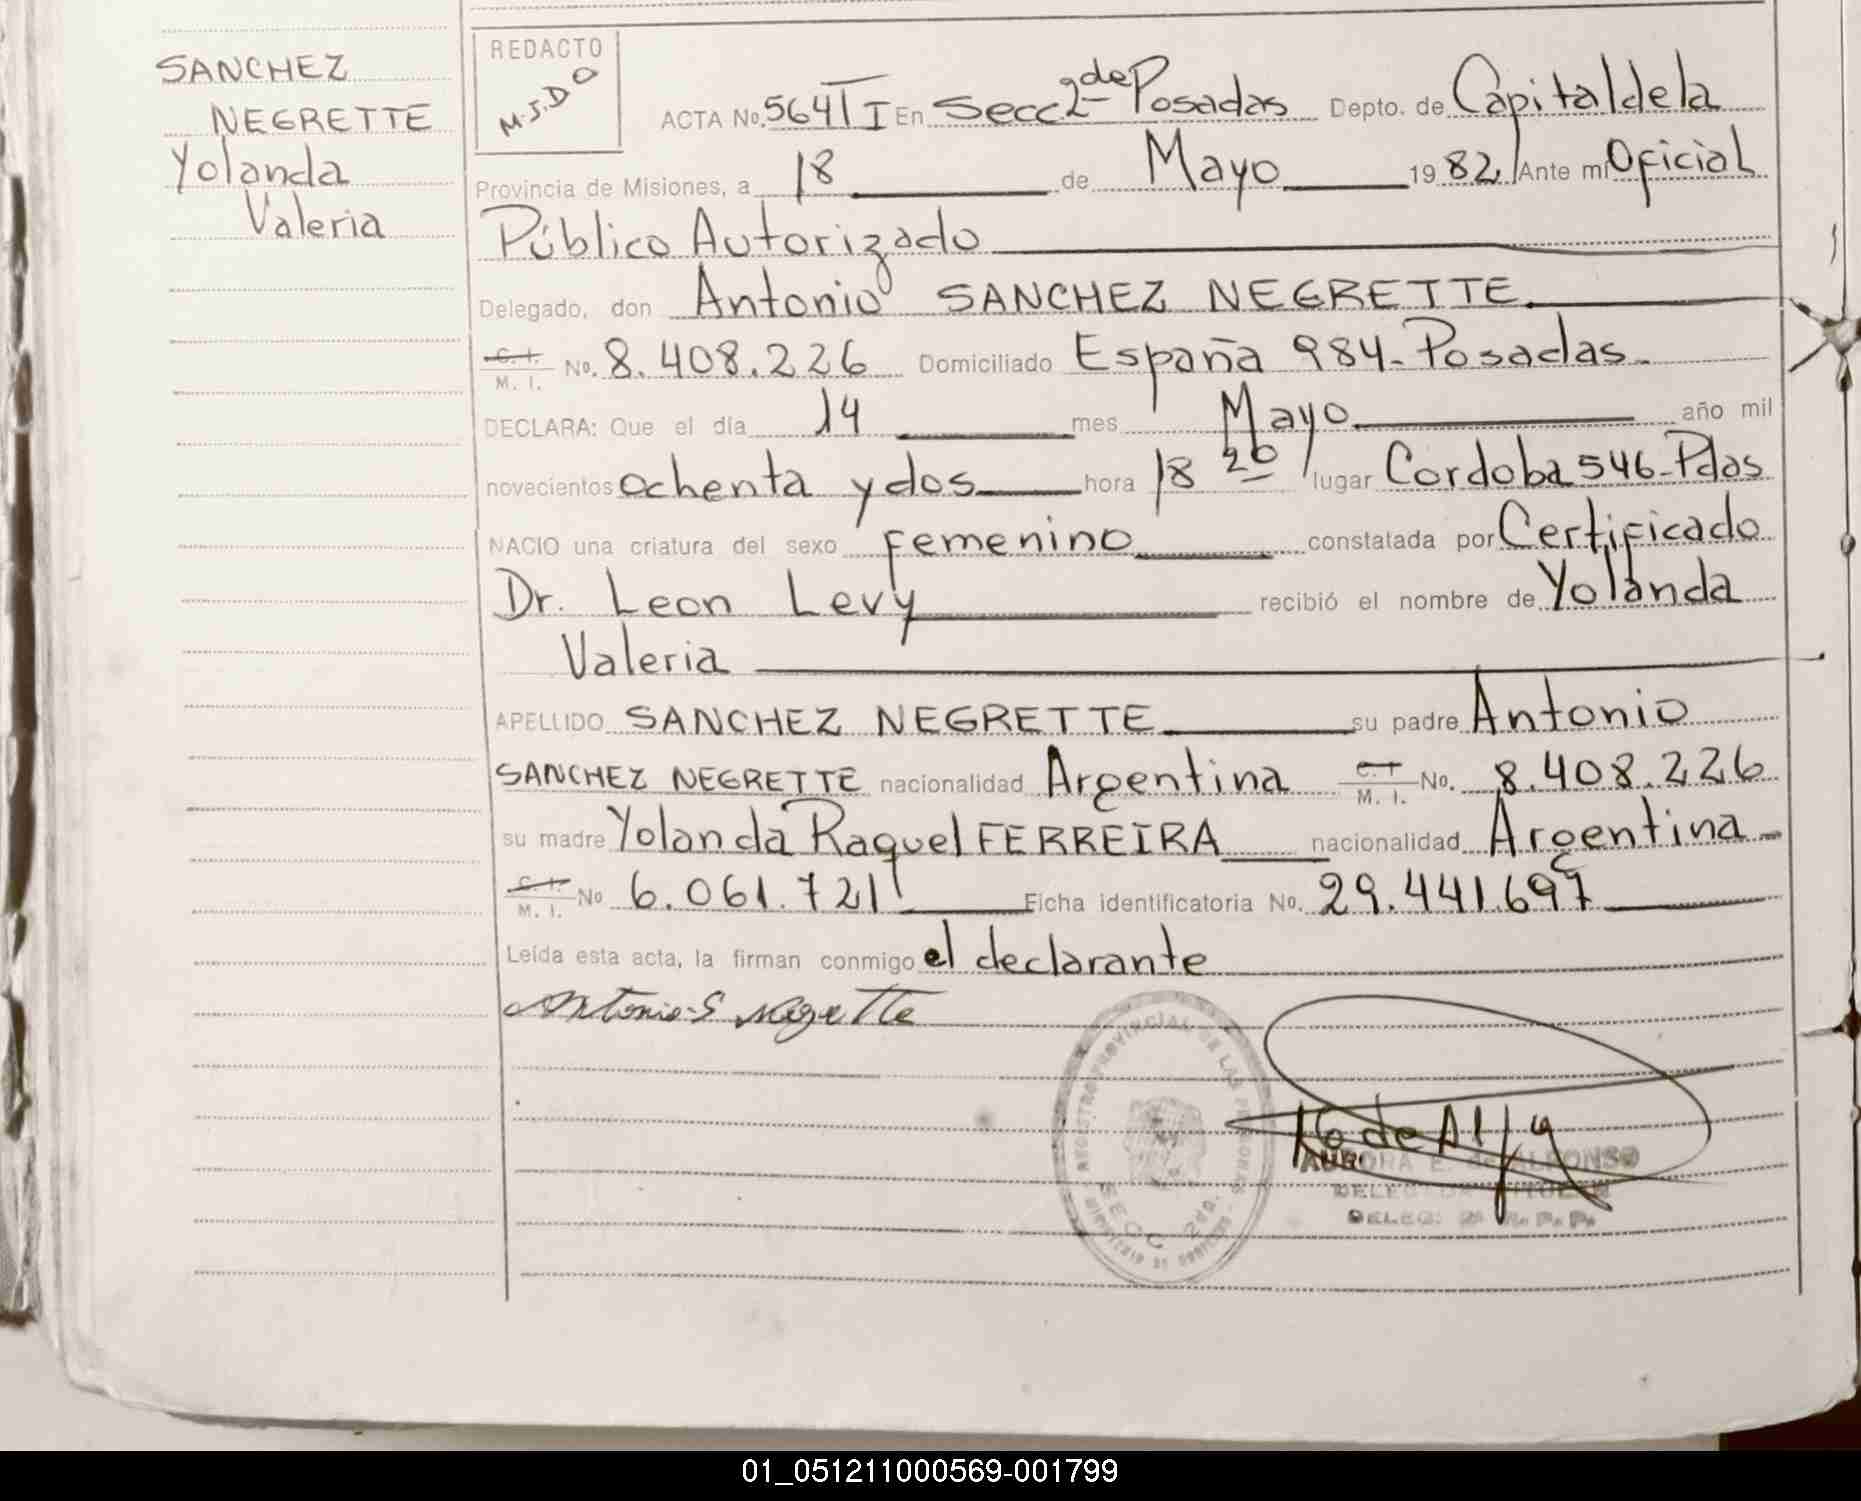 SANCHEZ
NEGRETTE
Yolanda
Valeria
REDACTO
M.J.D O
ACTA No. 564 T I En Secc. 2da de Posadas Depto. de Capital de la
Provincia de Misiones, a 18 de Mayo 1982 Ante mí Oficial
Público Autorizado
Delegado, don Antonio SANCHEZ NEGRETTE
C. I. M. I. No. 8.408.226 Domiciliado España 984-Posadas-
DECLARA: Que el día 14 mes Mayo año mil
novecientos ochenta y dos hora 18 20 lugar Cordoba 546-Pdas
NACIO una criatura del sexo femenino constatada por Certificado
Dr. Leon Levy recibió el nombre de Yolanda
Valeria
APELLIDO SANCHEZ NEGRETTE su padre Antonio
SANCHEZ NEGRETTE nacionalidad Argentina C. I. M. I. No. 8.408.226
su madre Yolanda Raquel FERREIRA nacionalidad Argentina-
C. I. M. I. No 6.061.721 Ficha identificatoria No. 29.441.697
Leída esta acta, la firman conmigo el declarante
Antonio S Negrette
REGISTRO PROVINCIAL DE LAS PERSONAS
SECC. 2da.
MINISTERIO DE GOBIERNO
AURORA E. de ALFONSO
DELEGADA TITULAR
DELEG. 2a R. P. P.
01_051211000569-001799